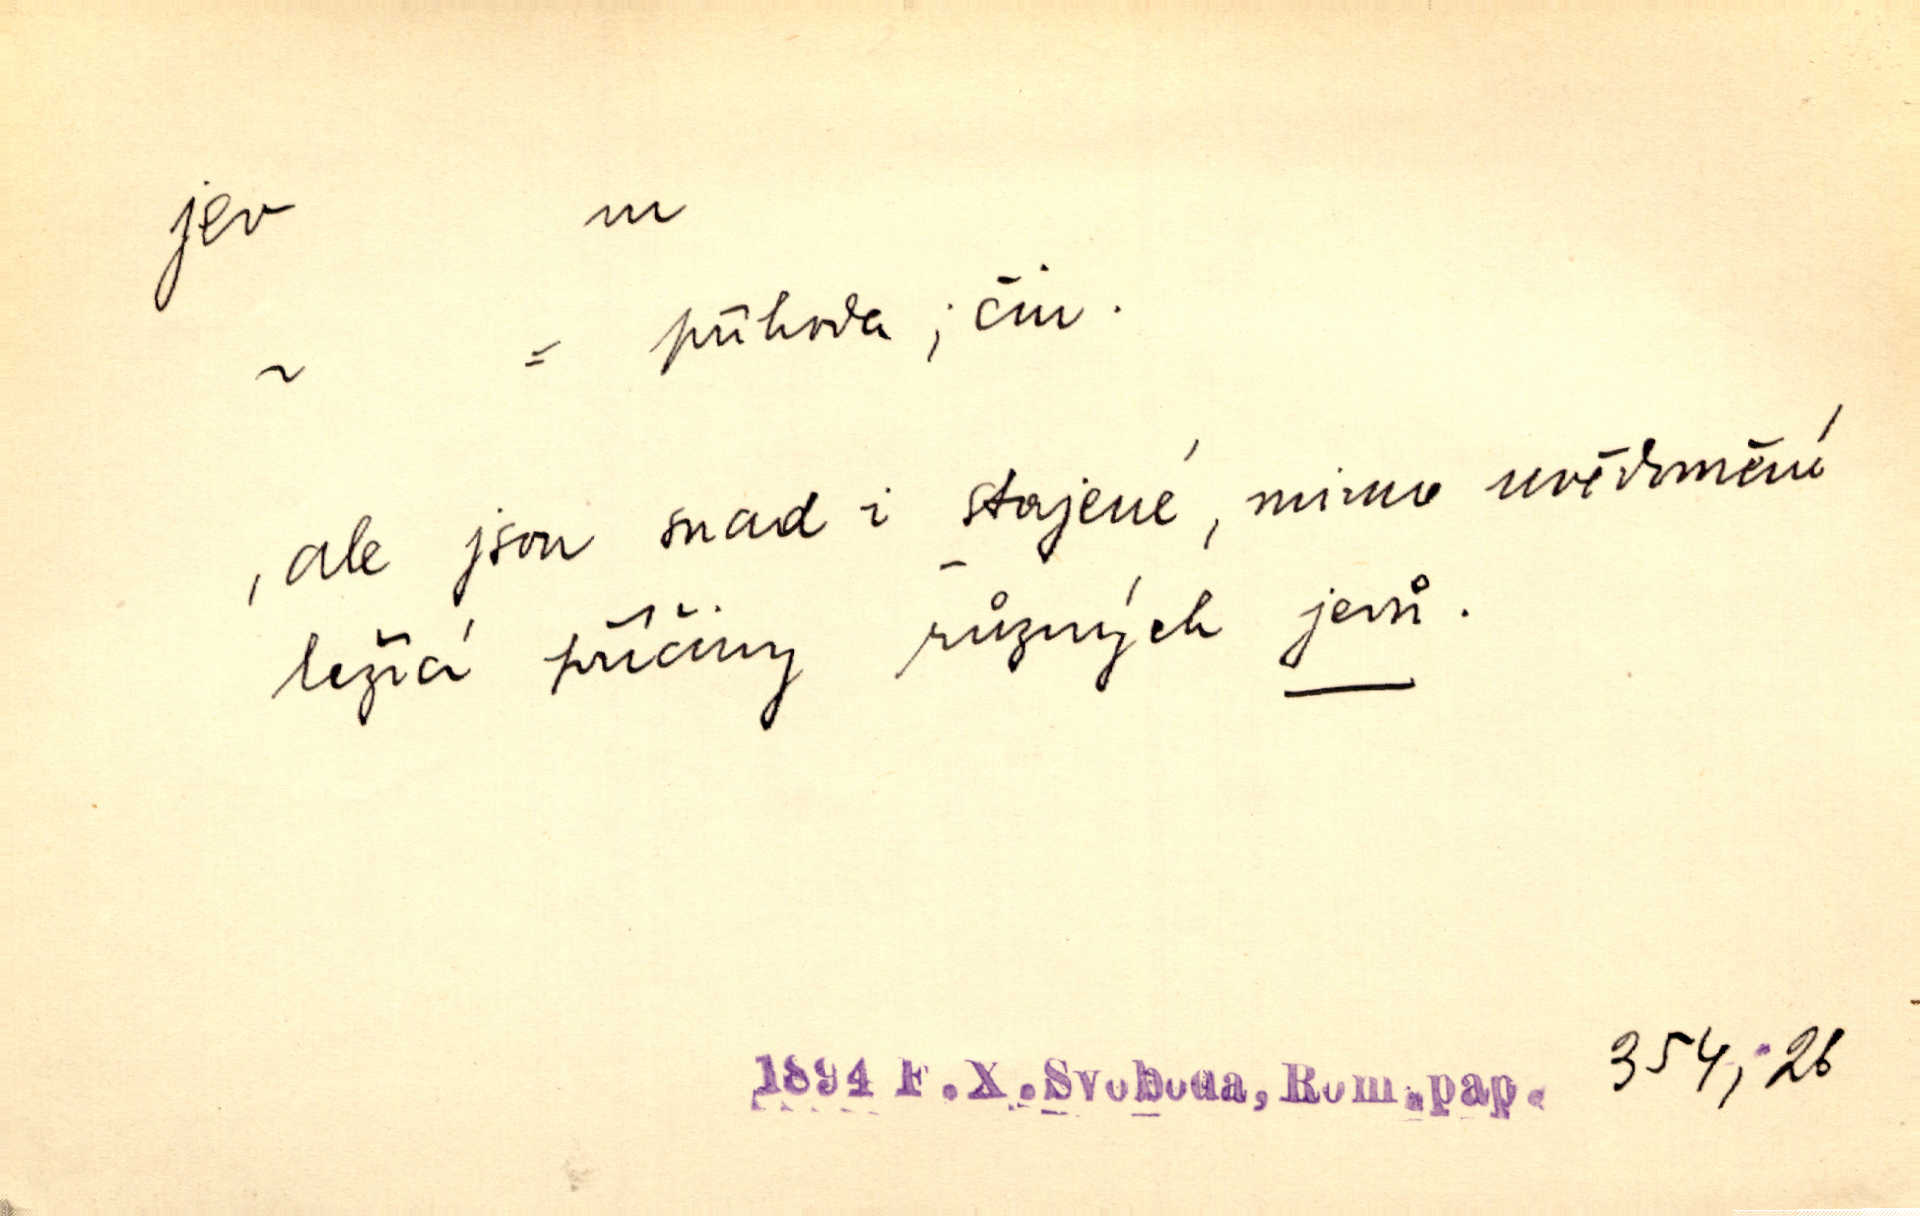 jev m
~ = příhoda ; čin .
, ale jsou snad i stajené , mimo uvědomění
ležící příčiny různých jevů .
1894 F.X.Svoboda, Rom.pap. 354, 26